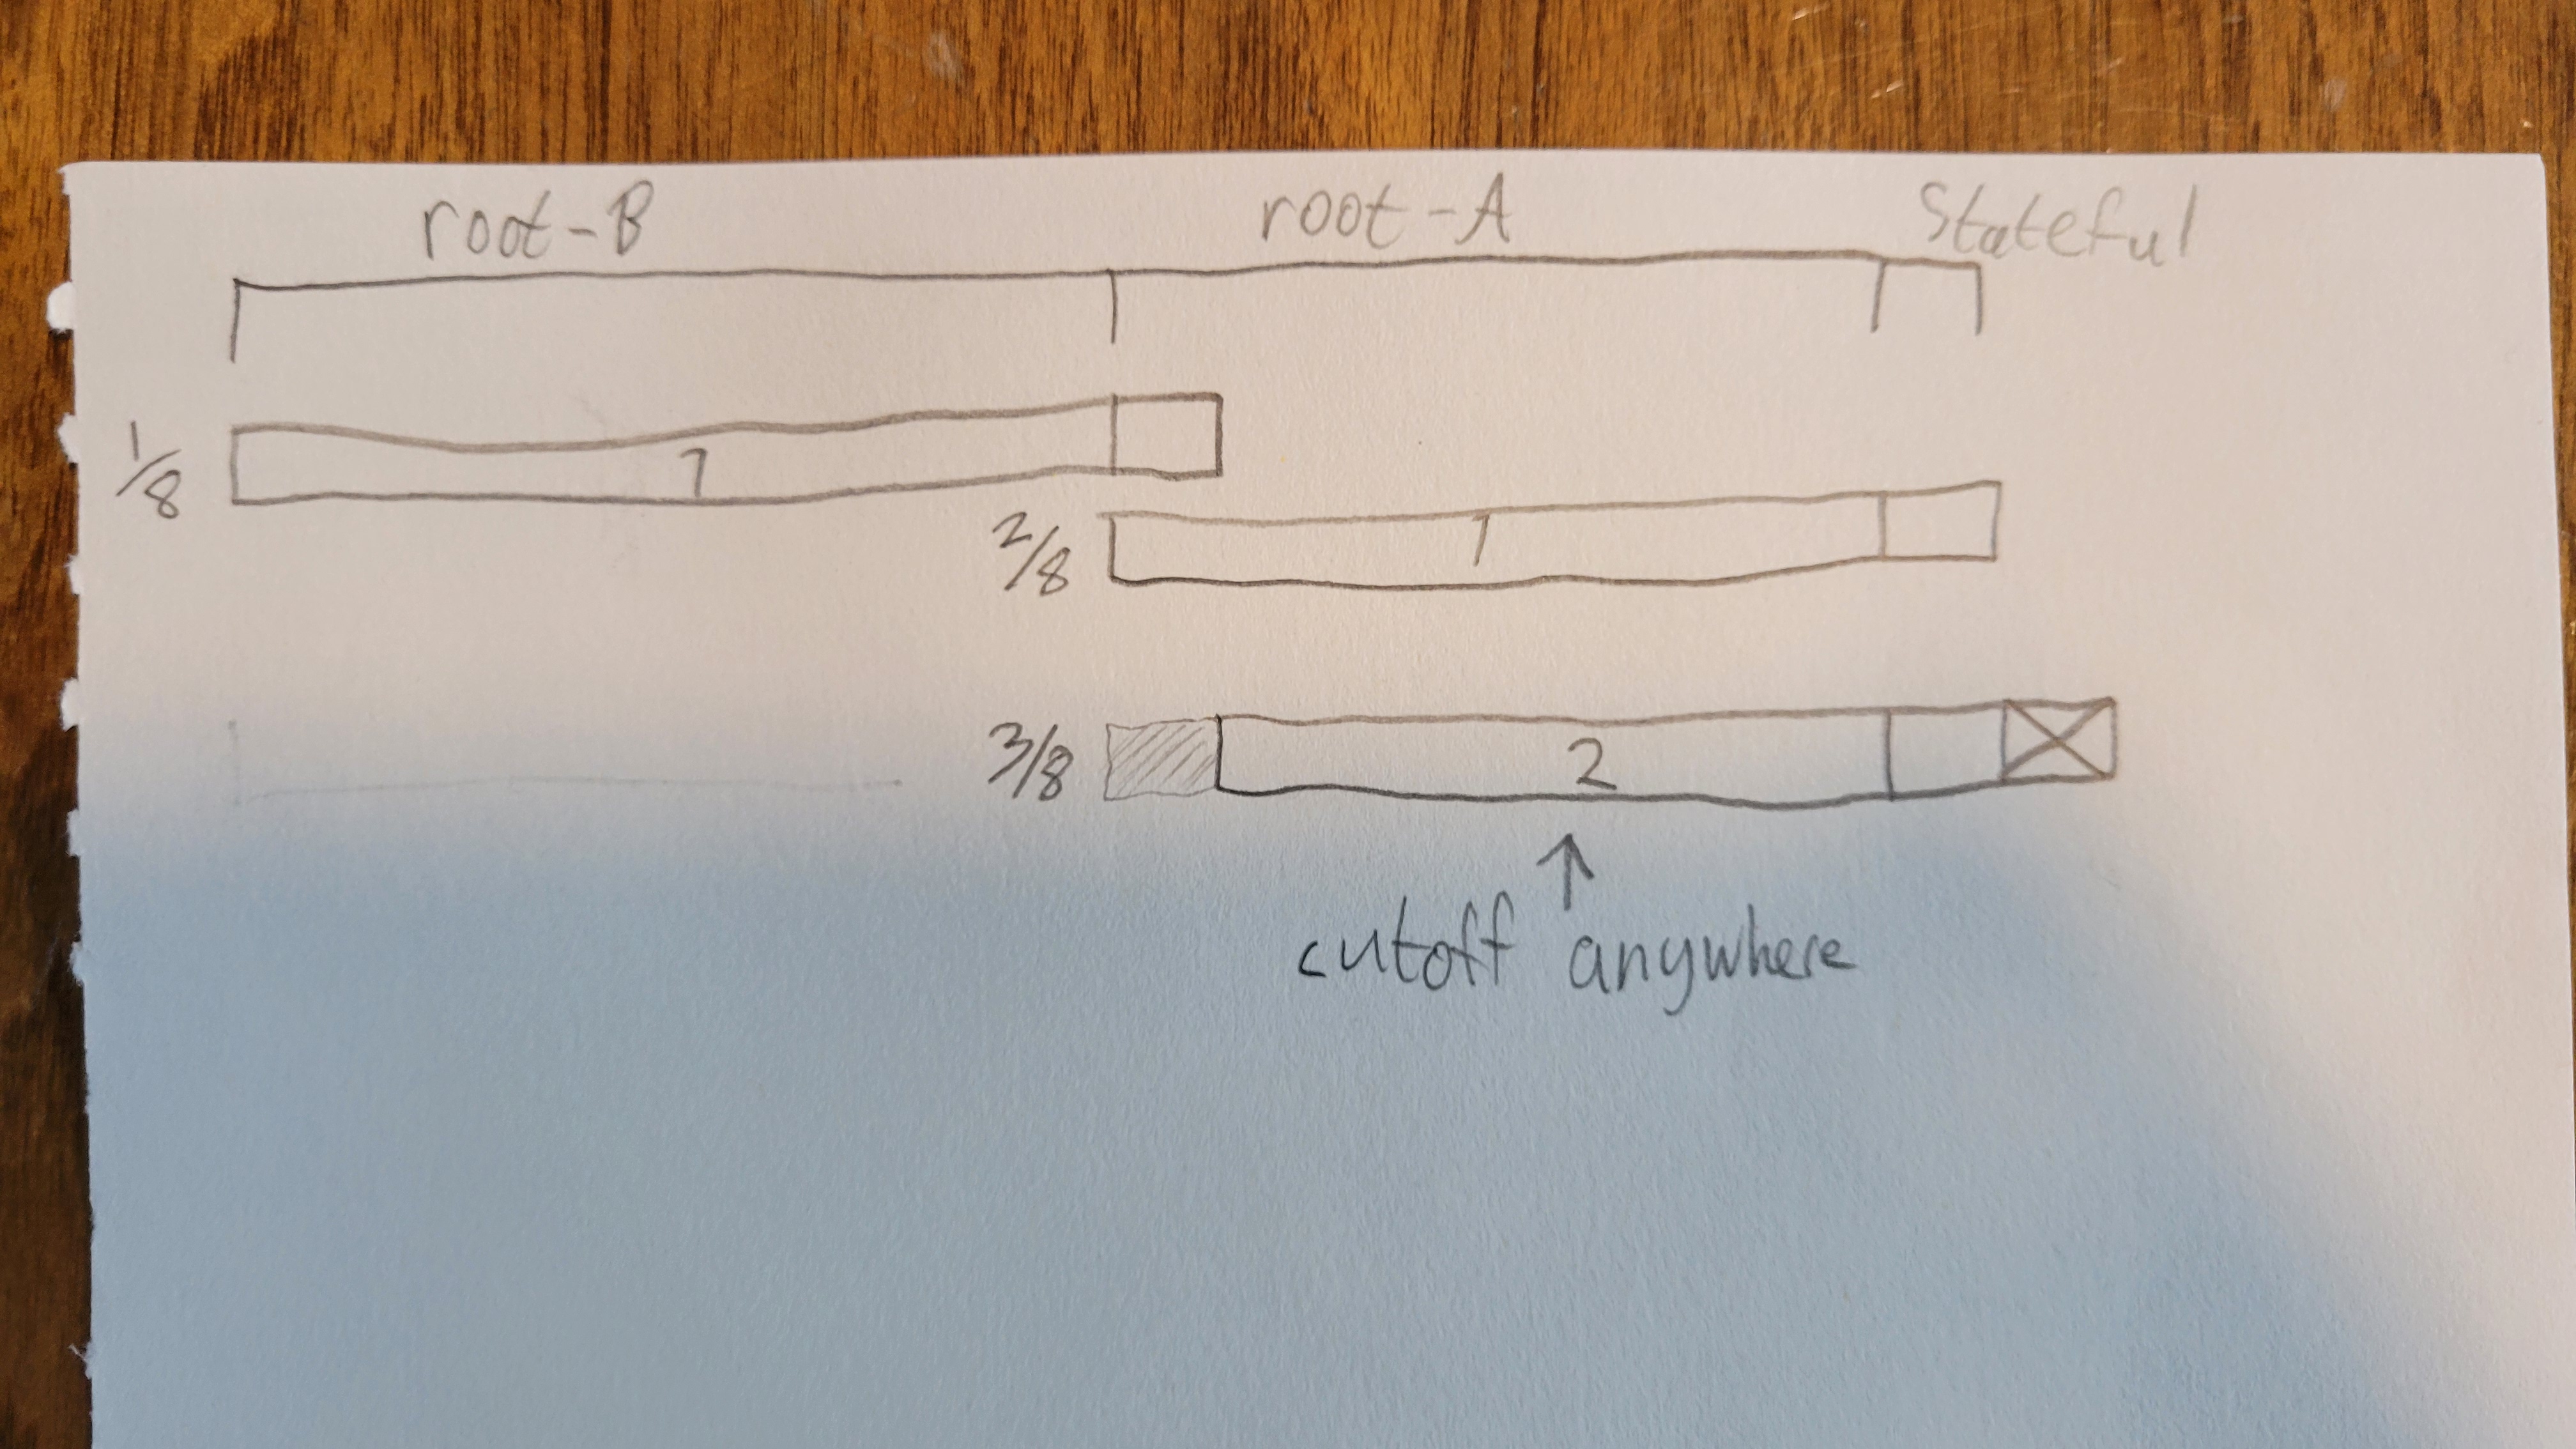 root-B root-A Stateful
1/8 1
2/8 1
3/8 2
cutoff anywhere